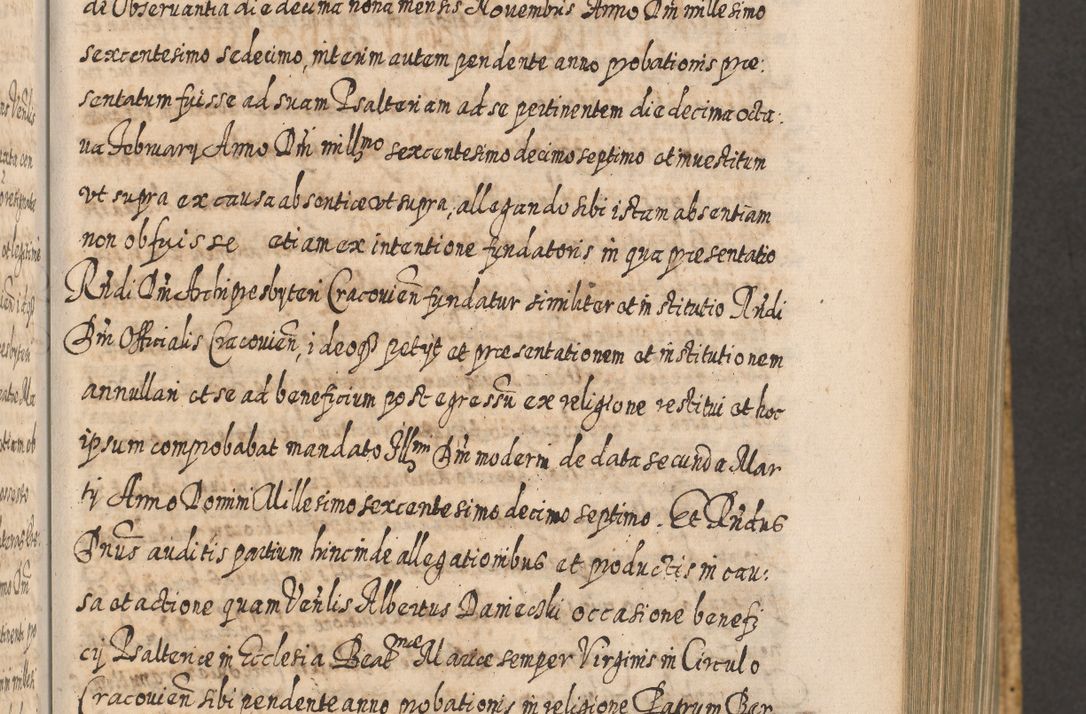 de Observantia die decima nona mensis Novembris Anno Dni millesimo
sexcentesimo sedecimo, interim autem pendente anno probationis præ:
sentatum fuisse ad suam Psalteriam ad se pertinentem die decima octa:
va February Anno Dni millmo sexcentesimo decimo septimo et investitum
vt supra ex causa absentiæ vt supra, allegando sibi istam absentiam
non obfuisse etiam ex intentione fundatoris in qua præsentatio
Rndi Dni Archipresbyteri Cracovien fundatur similiter et institutio Rndi
Dni Officialis Cracovien, ideoq petyt et præsentationem et institutionem
annullari et se ad beneficium post egressu ex religione restitui et hoc
ipsum comprobabat mandato Illmi Dni moderni de data secunda Mar
ty Anno Domini Millesimo sexcentesimo decimo septimo. Et Rndus
Dnus auditis partium hincinde allegationibus et productis in cau:
sa et actione quam Venlis Albertus Daniecki occasione benefi
cy Psalteriæ in Ecclesia Beatmæ Mariæ semper Virginis in Circulo
Cracovien sibi pendente anno probationis in religione Patrum Ber